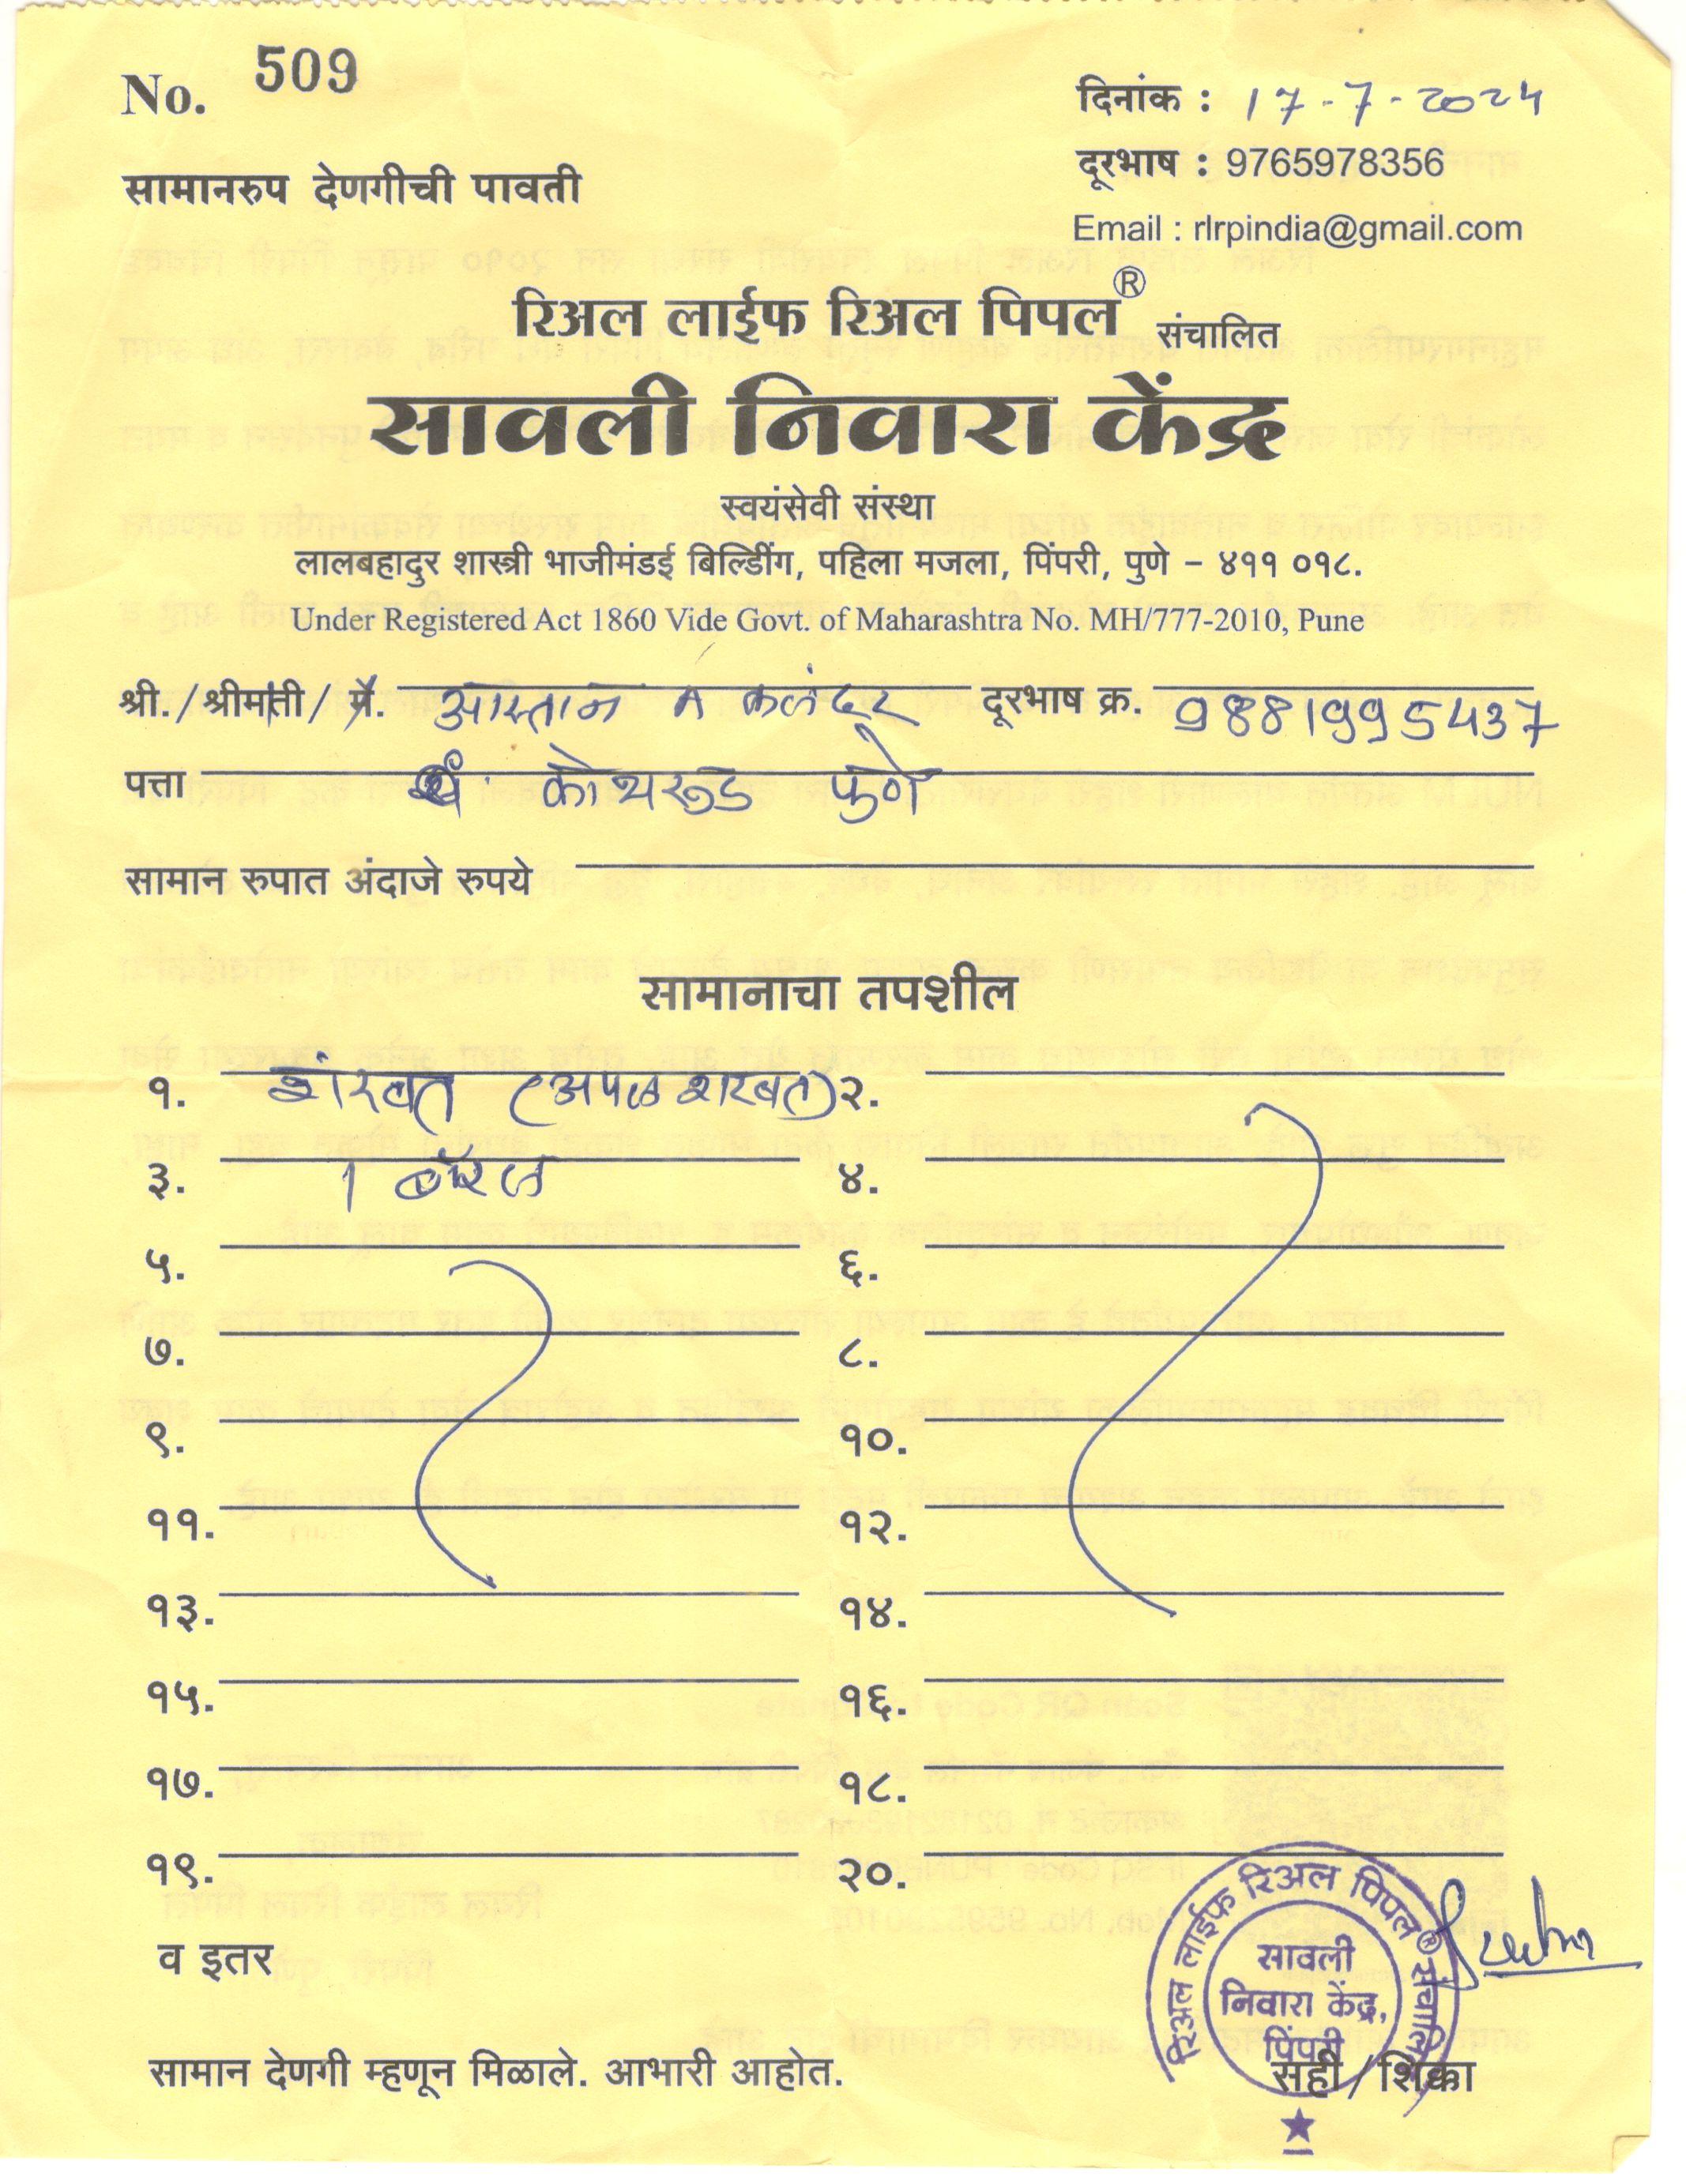 No. 509
दिनांक : 17-7-2024
दूरभाष : 9765978356
सामानरुप देणगीची पावती
Email : rlrpindia@gmail.com
रिअल लाईफ रिअल पिपल® संचालित
सावली निवारा केंद्र
स्वयंसेवी संस्था
लालबहादुर शास्त्री भाजीमंडई बिल्डिींग, पहिला मजला, पिंपरी, पुणे – ४११ ०१८.
Under Registered Act 1860 Vide Govt. of Maharashtra No. MH/777-2010, Pune
श्री./श्रीमती/मे. आस्तान A कलंदर दूरभाष क्र. 9881995437
पत्ता कोथरुड पुणे
सामान रुपात अंदाजे रुपये
सामानाचा तपशील
१. शंरबत (अपल शरबत) २.
३. 1 बॅरल ४.
५. ६.
७. ८.
९. १०.
११. १२.
१३. १४.
१५. १६.
१७. १८.
१९. २०.
व इतर
रिअल लाईफ रिअल पिपल® संचालित
सावली
निवारा केंद्र,
पिंपरी
सामान देणगी म्हणून मिळाले. आभारी आहोत.
सही/शिक्का